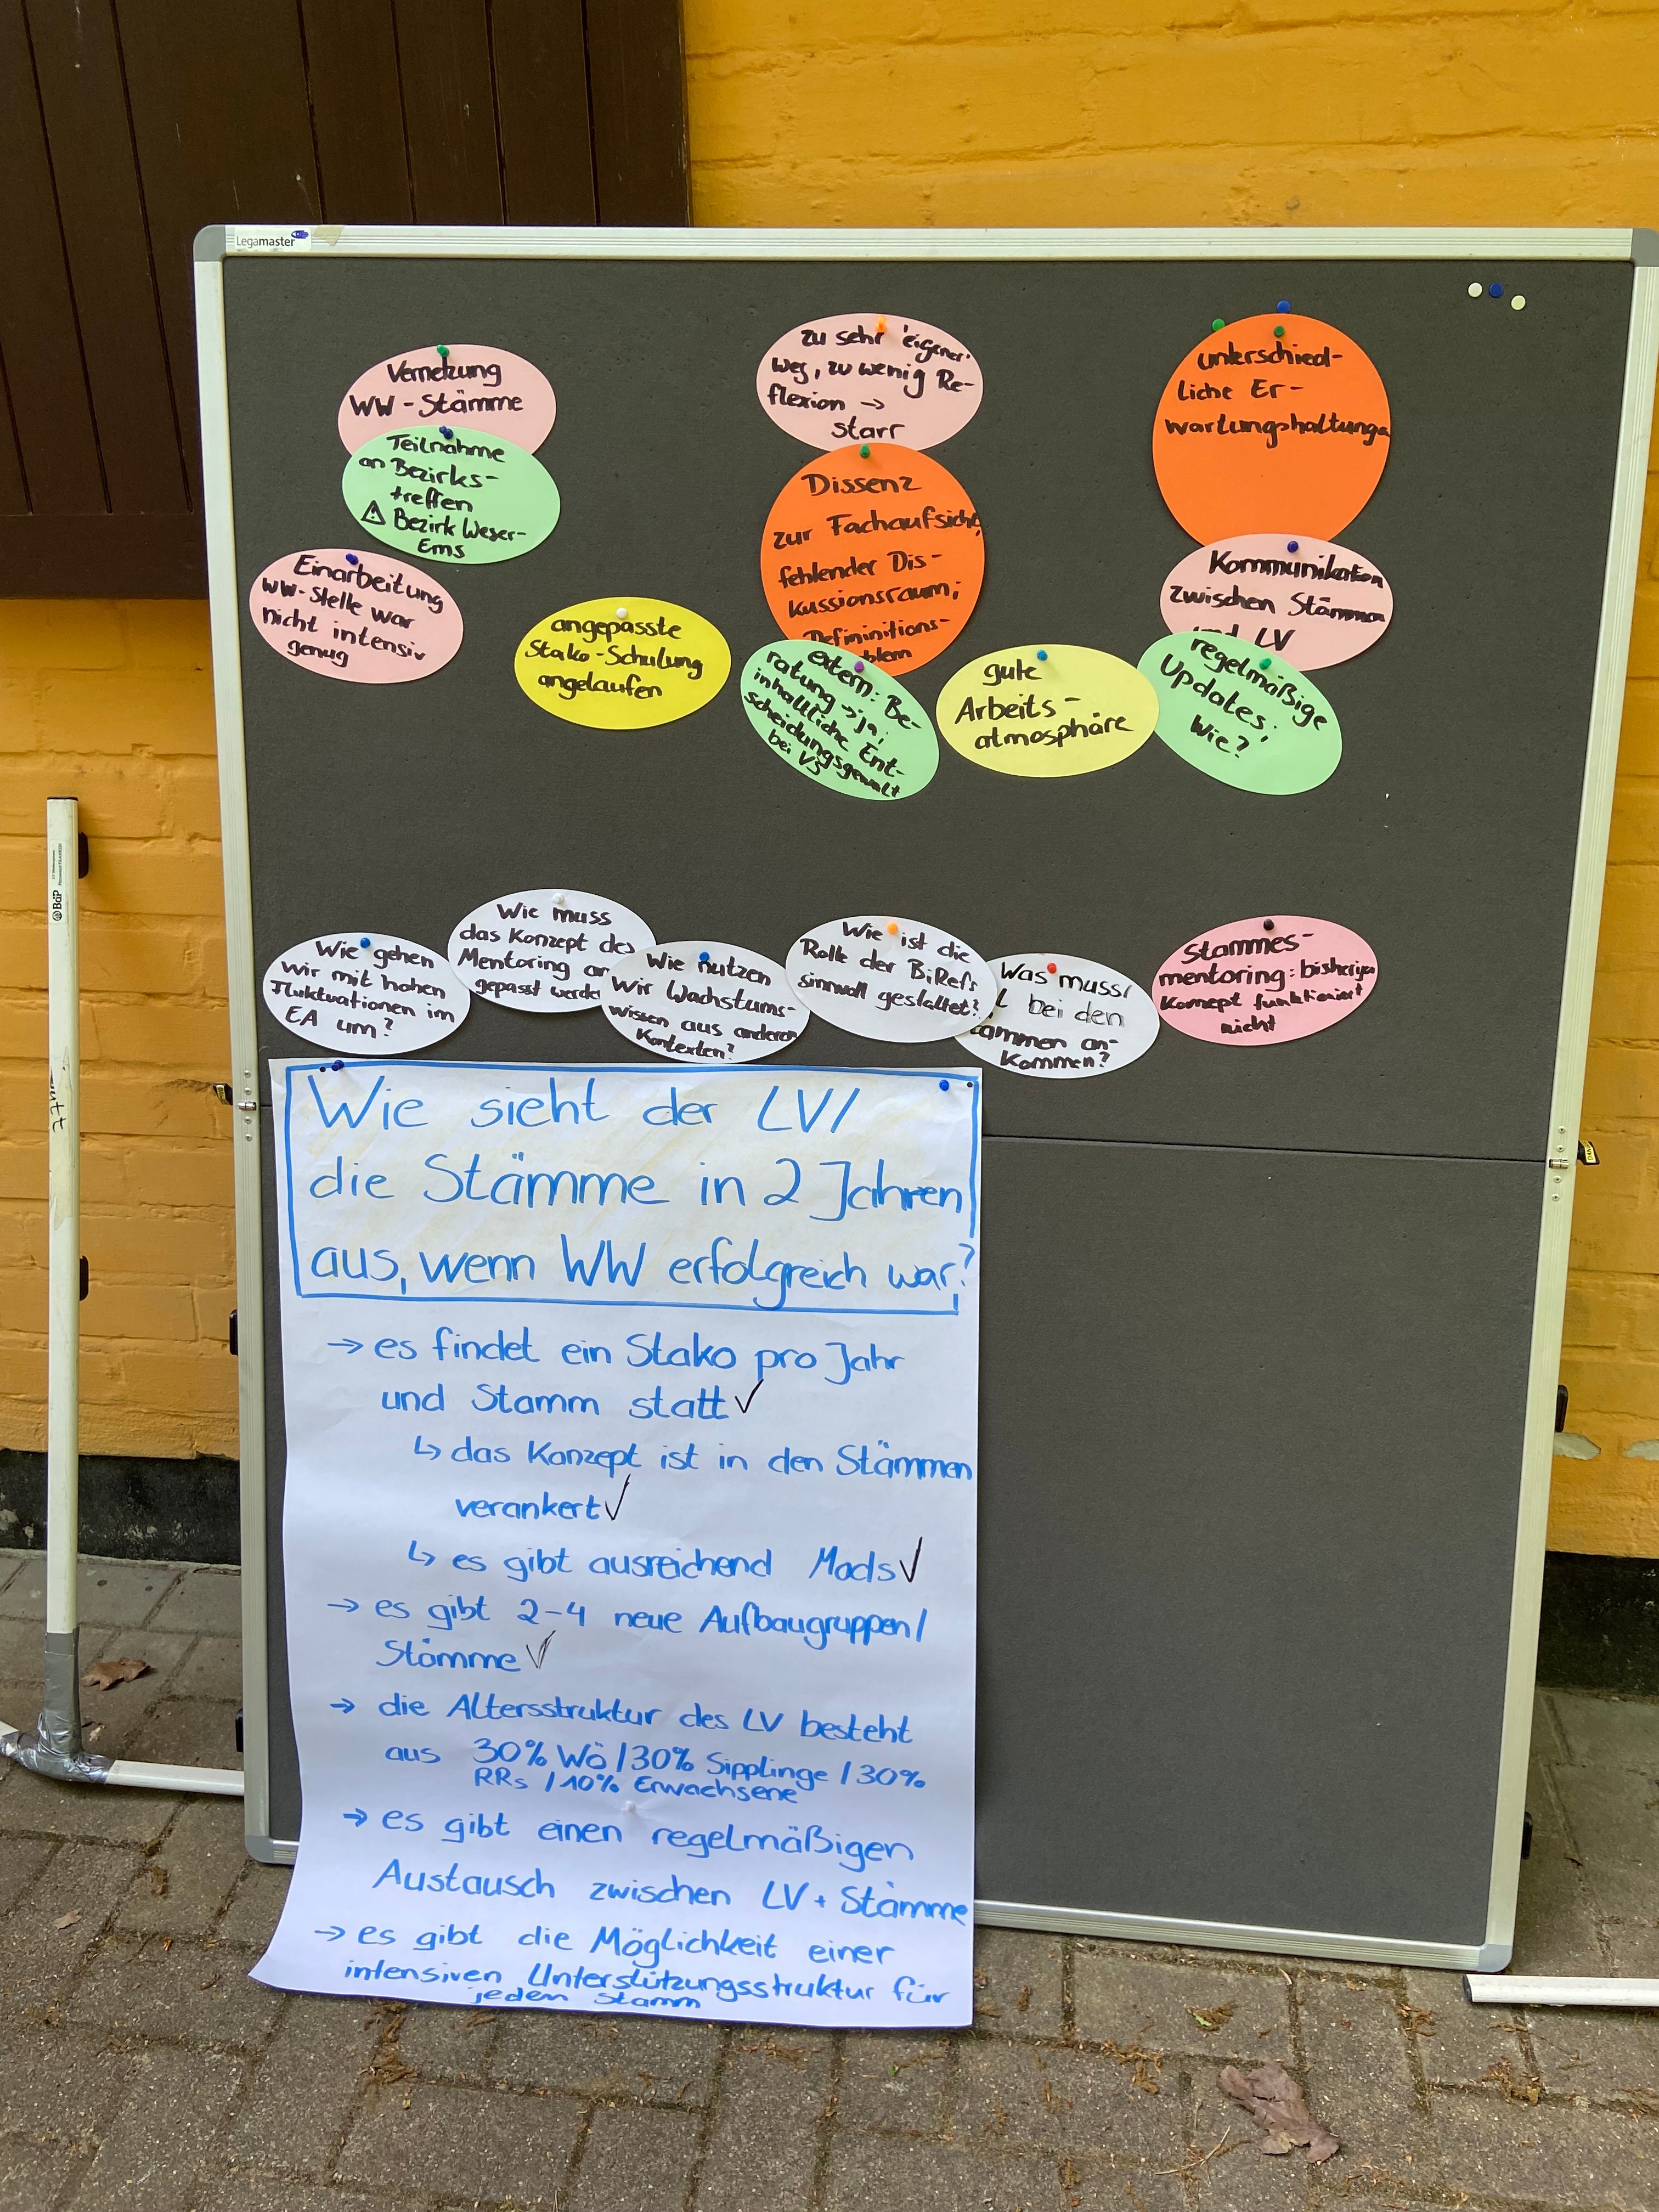 Legamaster
Vernetzung
WW-Stämme
Teilnahme
an Bezirks-
treffen
⚠ Bezirk Weser-
Ems
Einarbeitung
WW-Stelle war
nicht intensiv
genug
angepasste
Stako-Schulung
angelaufen
zu sehr 'eigener'
Weg, zu wenig Re-
flexion →
starr
Dissenz
zur Fachaufsicht,
fehlender Dis-
kussionsraum;
Defininitions-
blem
extern: Be-
ratung → ja;
inhaltliche Ent-
scheidungsgewalt
bei VS
gute
Arbeits-
atmosphäre
unterschied-
liche Er-
wartungshaltungen
Kommunikation
zwischen Stämmen
und LV
regelmäßige
Updates;
Wie?
Wie gehen
wir mit hohen
Fluktuationen im
EA um?
Wie muss
das Konzept des
Mentoring an
gepasst werde
Wie nutzen
wir Wachstums-
wissen aus anderen
Kontexten?
Wie ist die
Rolle der BiRefs
sinnvoll gestaltet?
Was muss/
l bei den
tämmen an-
kommen?
Stammes-
mentoring: bisheriges
Konzept funktioniert
nicht
Wie sieht der LV/
die Stämme in 2 Jahren
aus, wenn WW erfolgreich war?
→ es findet ein Stako pro Jahr
und Stamm statt ✓
↳ das Konzept ist in den Stämmen
verankert ✓
↳ es gibt ausreichend Mods ✓
→ es gibt 2-4 neue Aufbaugruppen/
Stämme ✓
→ die Altersstruktur des LV besteht
aus 30% Wö / 30% Sipplinge / 30%
RRs / 10% Erwachsene
→ es gibt einen regelmäßigen
Austausch zwischen LV + Stämme
→ es gibt die Möglichkeit einer
intensiven Unterstützungsstruktur für
jeden Stamm
BdP